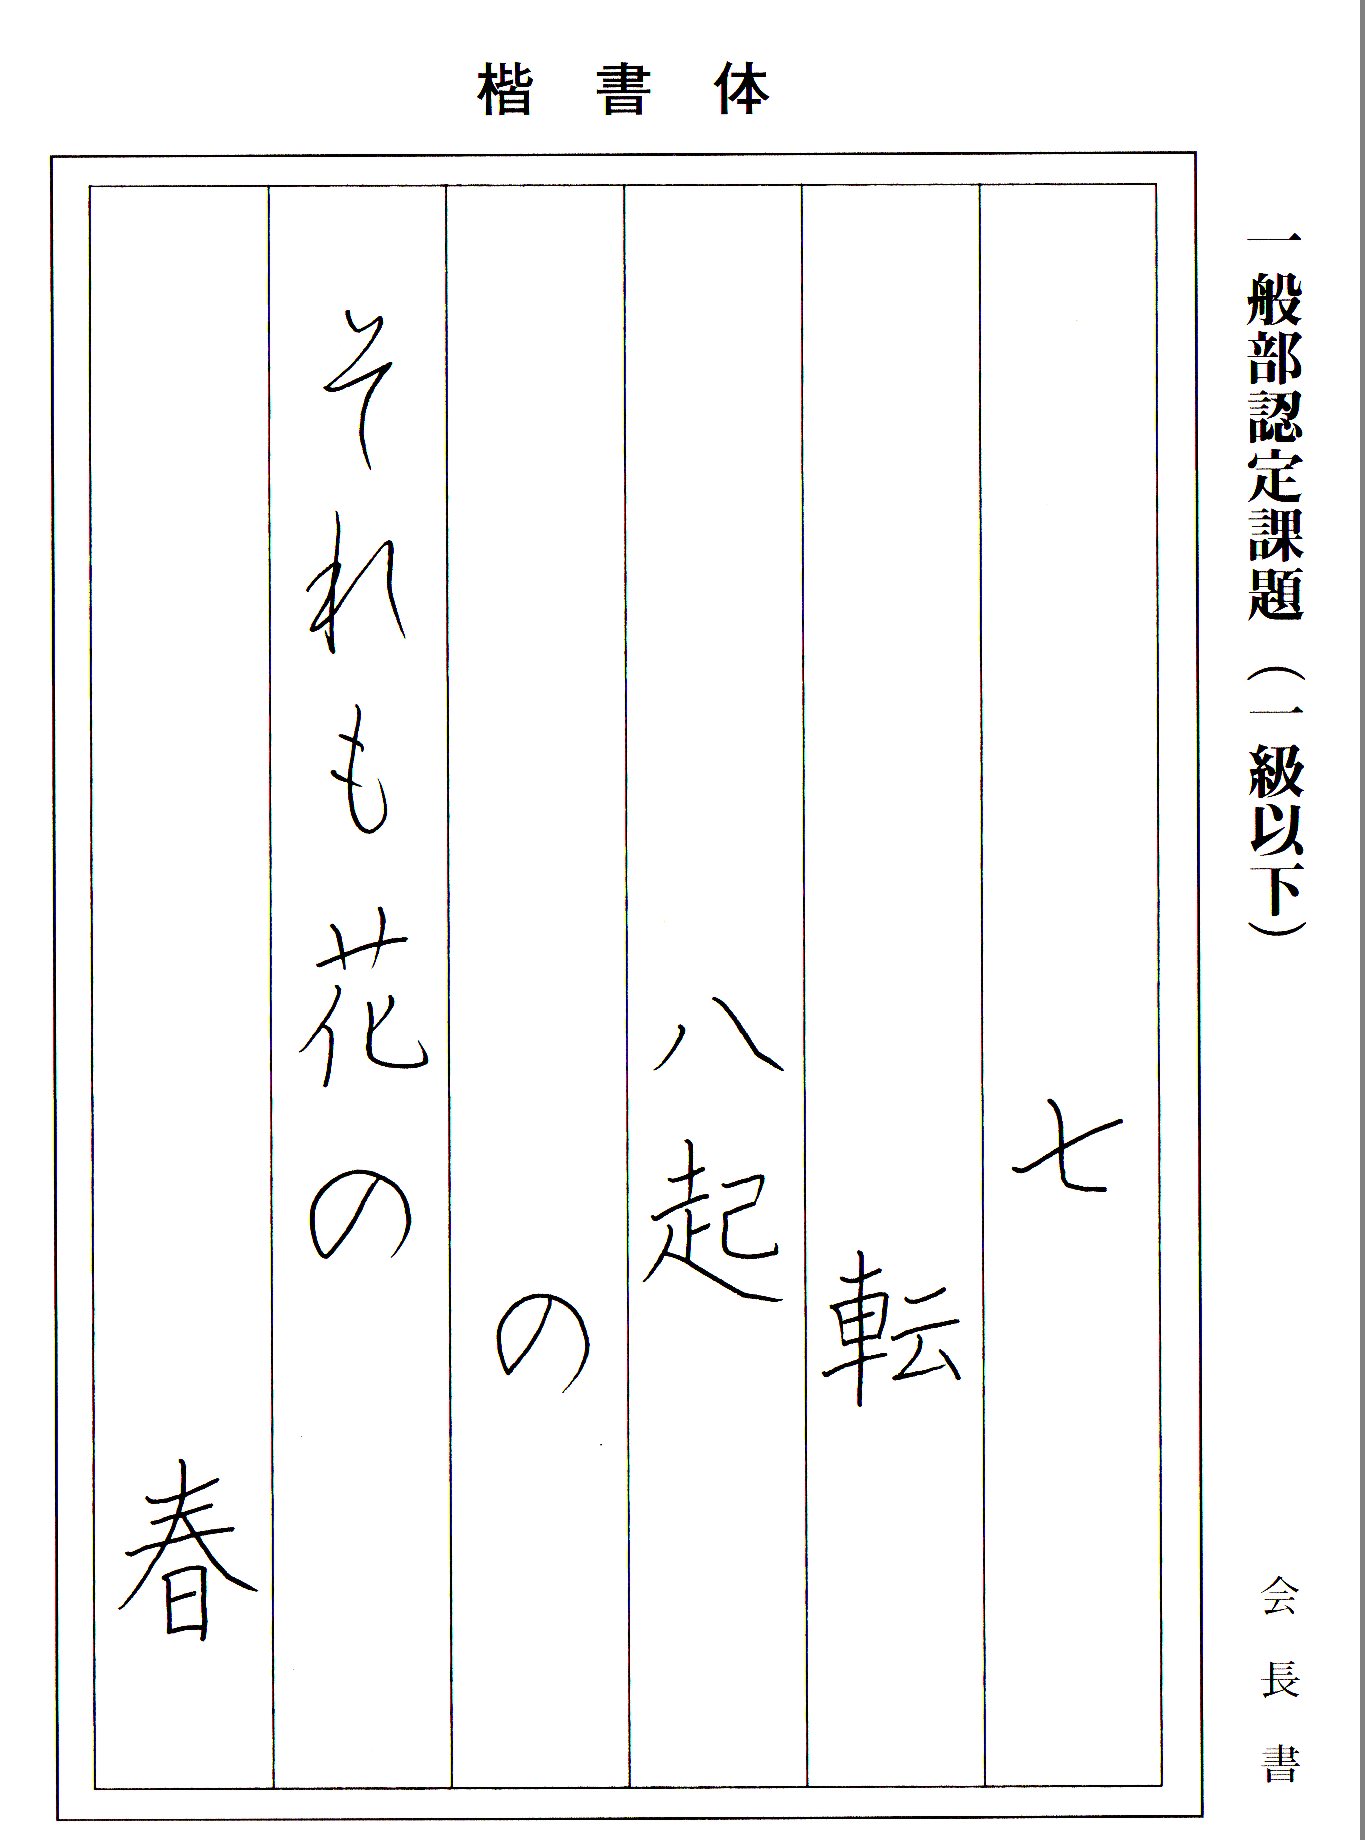 楷書体
一般部認定課題（一級以下）
会長書
七
転
八起
の
それも花の
春